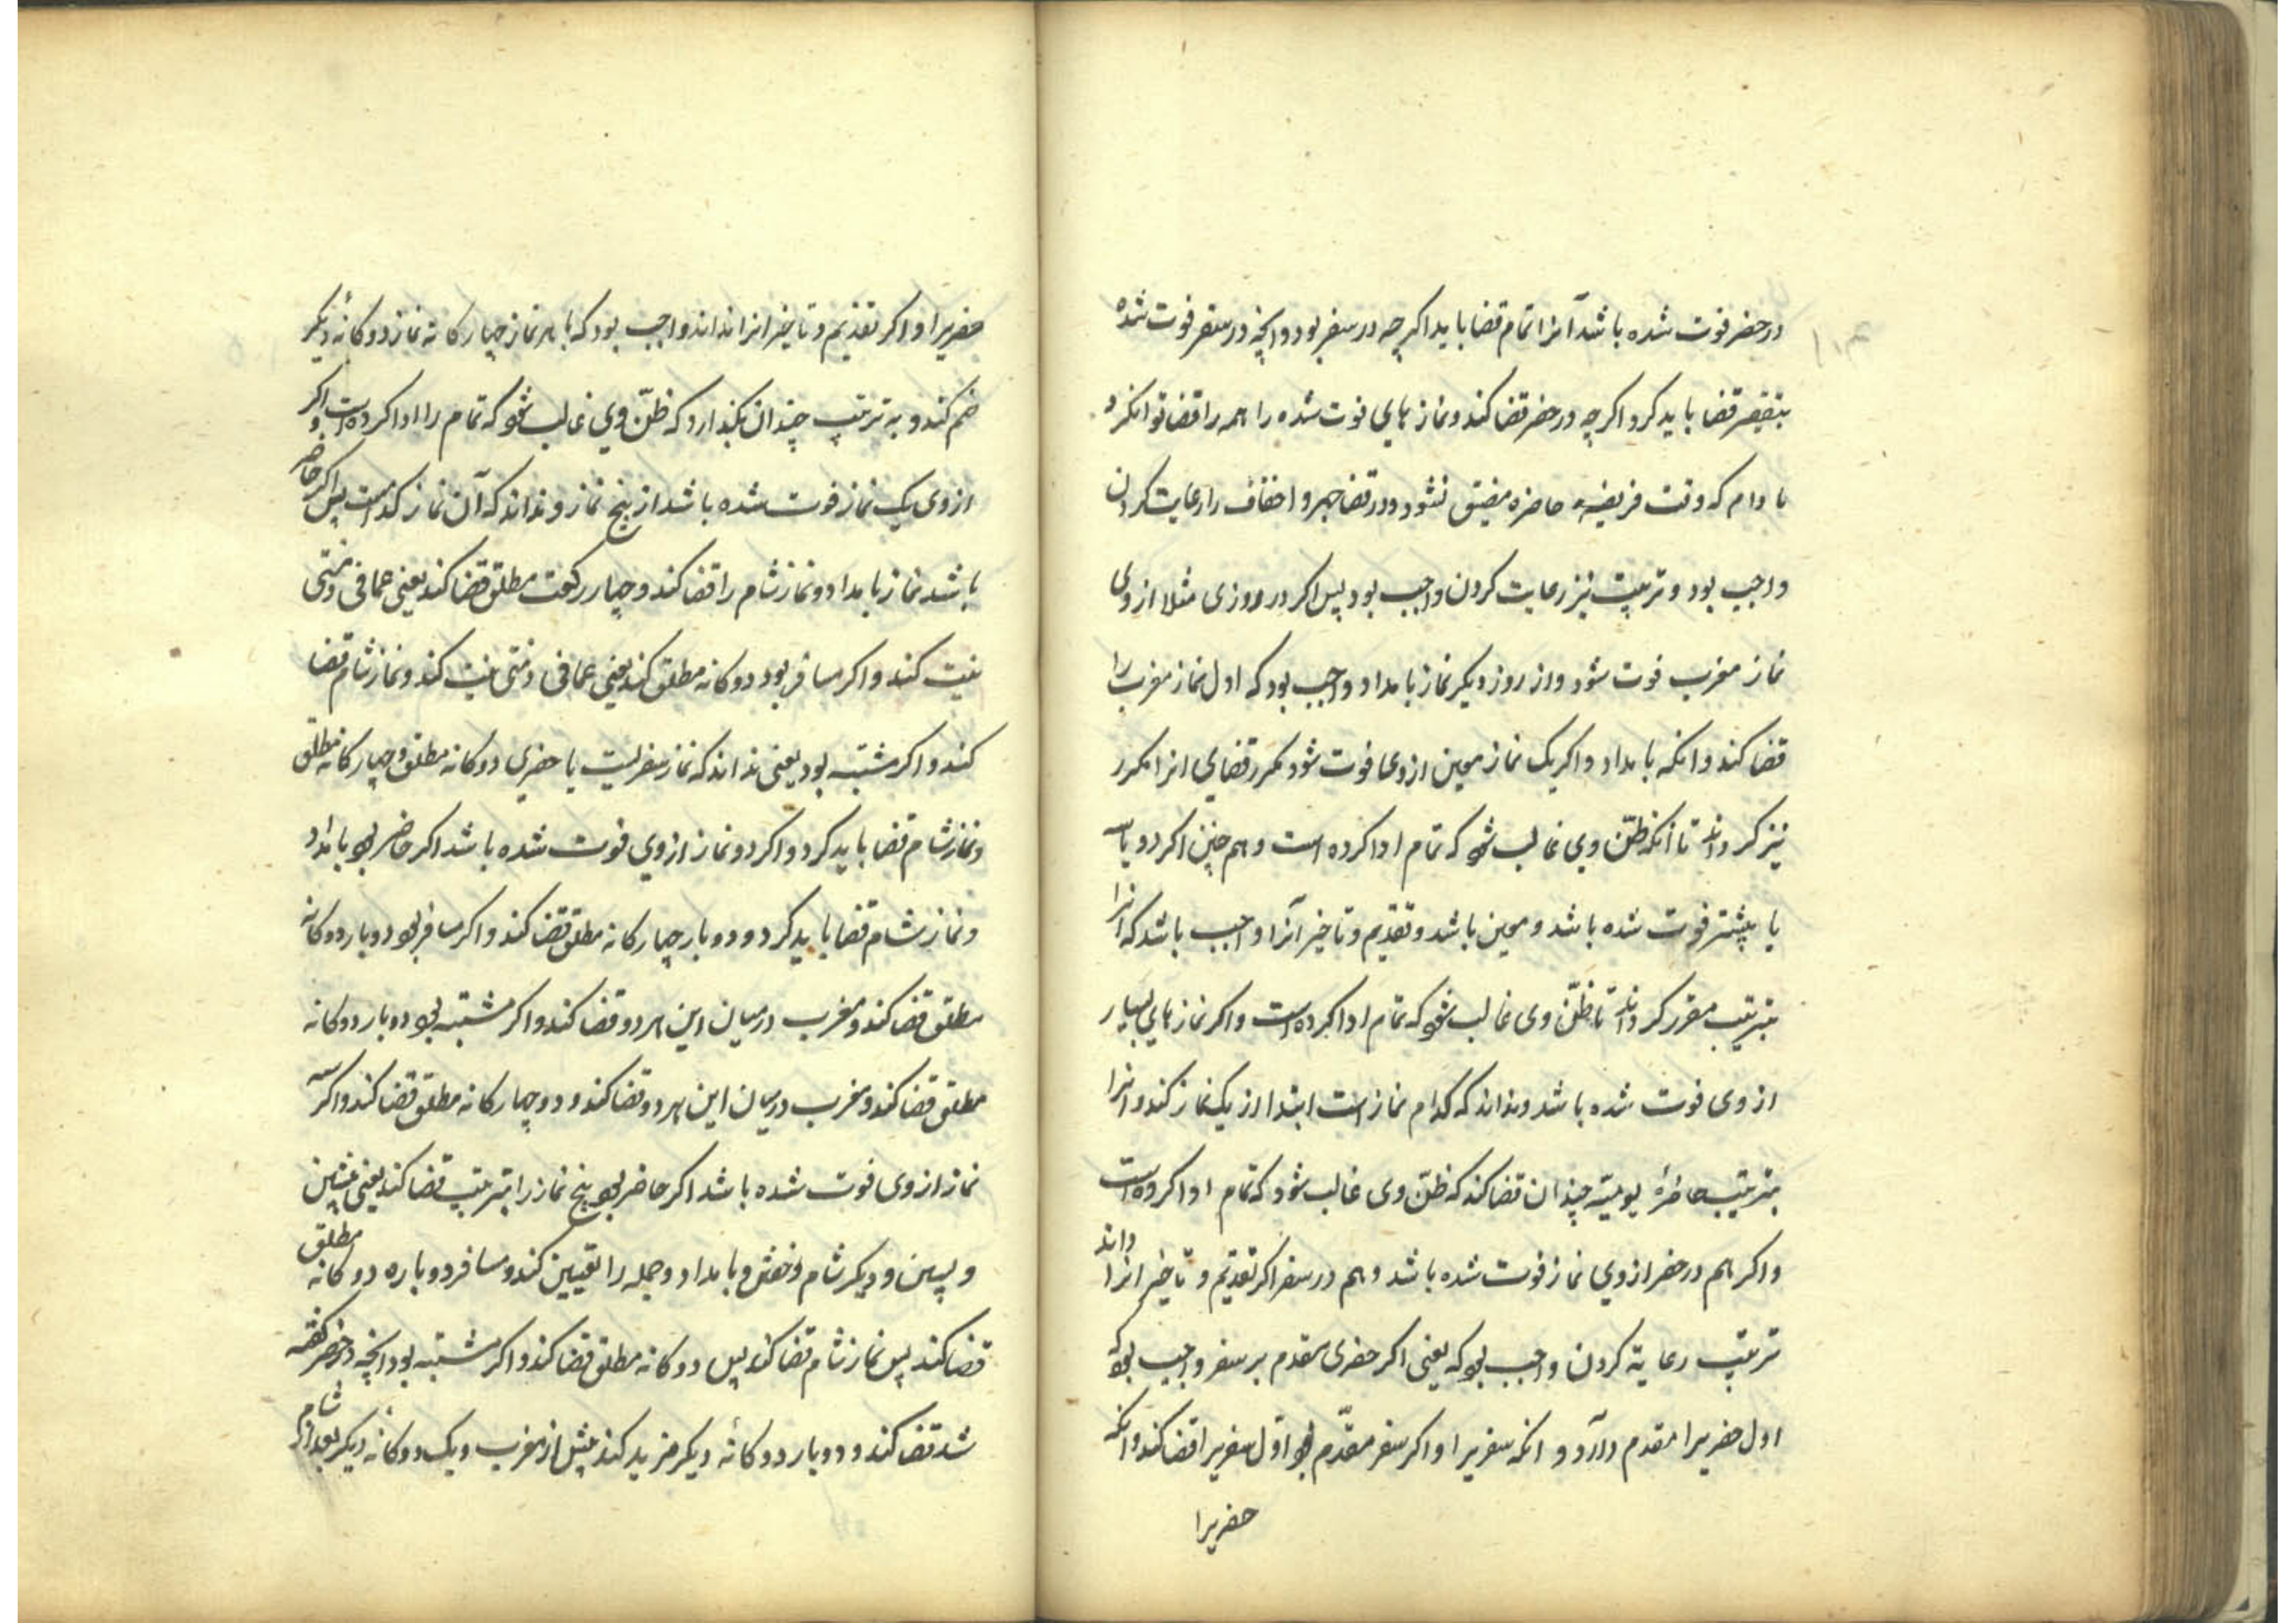 در حضر فوت شده باشد آنرا تمام قضا باید اکرچه در سفر بود و آنچه در سفر فوت شده
بتقصیر قضا باید کرد اکرچه در حضر قضا کند و نماز هایی فوت شده را همه را قضا توانکرد
مادام که وقت فریضهٔ حاضره مضیق نشود و در قضا جهر و اخفاف را رعایت کردن
واجب بود و ترتیب نیز رعایت کردن واجب بود پس اکر در روزی مثلا از وی
نماز مغرب فوت شود و از روز دیکر نماز بامداد واجب بود که اول نماز مغرب را
قضا کند و انکه بامداد و اکر یک نماز معین از وی فوت شود مکرر قضایی انرا مکرر
نیز کرداند تا آنکه ظنّ وی غالب شود که تمام ادا کرده است و هم چنین اکر دو یا سه
یا بیشتر فوت شده باشد و معین باشد و تقدیم و تاخیر آنرا واجب باشد که انرا
بترتیب مقرر کرداند تا ظنّ وی غالب شود که تمام ادا کرده است و اکر نماز هایی بسیار
از وی فوت شده باشد و نداند که کدام نماز است ابتدا از یک نماز کند و انرا
بترتیب حاضرهٔ یومیّه چندان قضا کند که ظنّ وی غالب شود که تمام ادا کرده است
و اکر هم در حضر از وی نماز فوت شده باشد و هم در سفر اکر تقدیم و تاخیر انرا داند
ترتیب رعایة کردن واجب بود که یعنی اکر حضری مقدم بر سفر واجب بود که
اول حضریرا مقدم دارد و انکه سفریرا و اکر سفر مقدّم بود اوّل سفریرا قضا کند و انکه
حضریرا
حضریرا و اکر تقدیم و تاخیر انرا نداند واجب بود که با هر نماز چهارکانه نماز دوکانهٔ دیکر
ضم کند و به ترتیب چندان بکذارد که ظنّ وی غالب شود که تمام را ادا کرده است و اکر
از وی یک نماز فوت شده باشد از پنج نماز و نداند که آن نماز کدامست پس اکر حاضر
باشد نماز بامداد و نماز شام را قضا کند و چهار رکعت مطلق قضا کند یعنی عما فی ذمتی
نیت کند و اکر مسافر بود دوکانه مطلق کند یعنی عما فی ذمتی نیت کند و نماز شام قضا
کند و اکر مشتبه بود یعنی نداند که نماز سفریست یا حضری دوکانه مطلق و چهارکانه مطلق
و نماز شام قضا باید کرد و اکر دو نماز از وی فوت شده باشد اکر حاضر بود بامداد
و نماز شام قضا باید کرد و دو بار چهارکانه مطلق قضا کند و اکر مسافر بود دو بار دوکانه
مطلق قضا کند و مغرب در میان این هر دو قضا کند و اکر مشتبه بود دو بار دوکانه
مطلق قضا کند و مغرب در میان این هر دو قضا کند و دو چهارکانه مطلق قضا کند و اکر سه
نماز از وی فوت شده باشد اکر حاضر بود پنج نماز را بترتیب قضا کند یعنی پیشین
و پسین و دیکر شام و خفتن و بامداد و جمله را تعیین کند و مسافر دو باره دوکانه مطلق
قضا کند پس نماز شام قضا کند پس دوکانه مطلق قضا کند و اکر مشتبه بود انچه در حضر کفته
شد قضا کند و دو بار دوکانهٔ دیکر مزید کند پیش از مغرب و یک دوکانهٔ دیکر بعد از شام